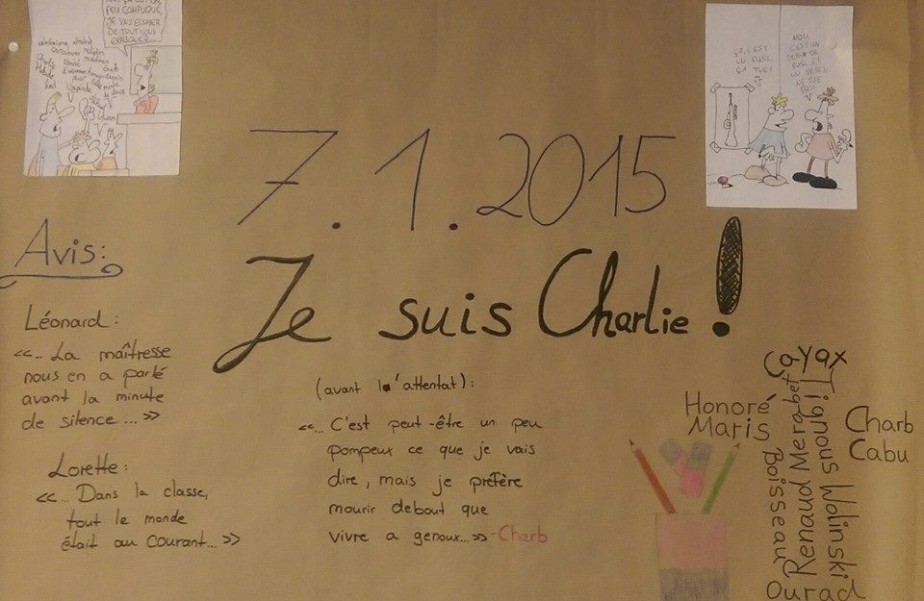 PEU COMPLIQUÉ,
JE VAIS ESSAYER
DE TOUT VOUS
EXPLIQUER...
ÇA, C'EST
UN FUSIL,
ÇA TUE!
NON,
C'EST UN
DESSIN DE
FUSIL ET
UN DESSIN
NE TUE
PAS!
7.1.2015
Je suis Charlie!
Avis:
Léonard:
«... La maîtresse
nous en a parlé
avant la minute
de silence...»
Lorette:
«... Dans la classe,
tout le monde
était au courant...»
(avant l'attentat):
«... C'est peut-être un peu
pompeux ce que je vais
dire, mais je préfère
mourir debout que
vivre a genoux...» -Charb
Honoré
Maris
Cayax
Boisseau
Renaud Merabet
Tignous Wolinski
Ourad
Charb
Cabu